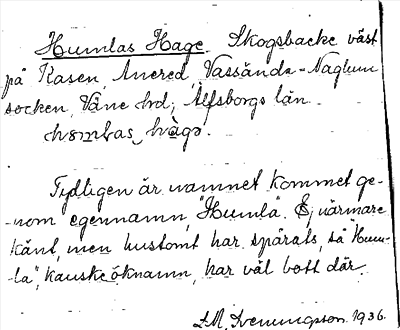 Humlas Hage. Skogsbacke väst
på Kasen, Anered, Vassända-Naglum
socken, Väne hd; Älfsborgs län.
hòmlas hàgə.
Tydligen är namnet kommet ge-
-nom egennamn, "Humla". Ej närmare
känt, men hustomt har spårats, så "Hum-
-la", kanske öknamn, har väl bott där.
L. M. Svenungsson. 1936.